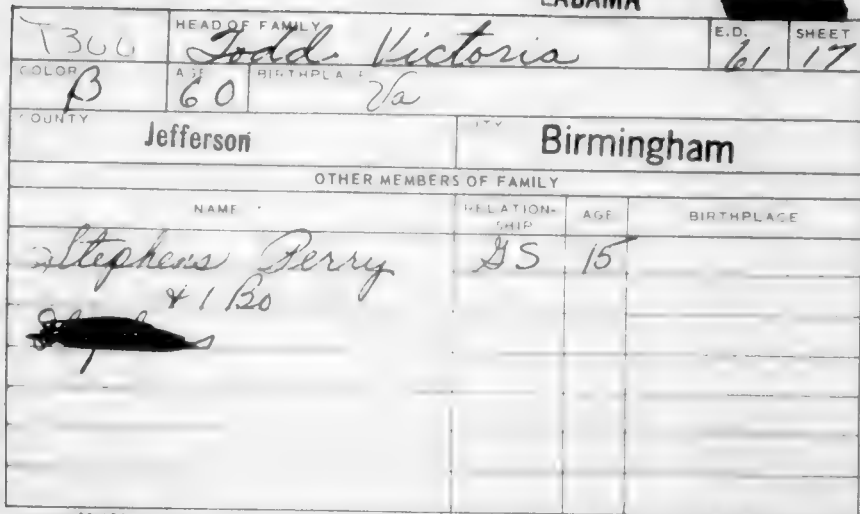 LABAMA
T300 HEAD OF FAMILY Todd Victoria E.D. 61 SHEET 17
COLOR B AGE 60 BIRTHPLACE Va
COUNTY Jefferson CITY Birmingham
OTHER MEMBERS OF FAMILY
NAME RELATION-SHIP AGE BIRTHPLACE
Stephens Perry GS 15
& 1 Bo